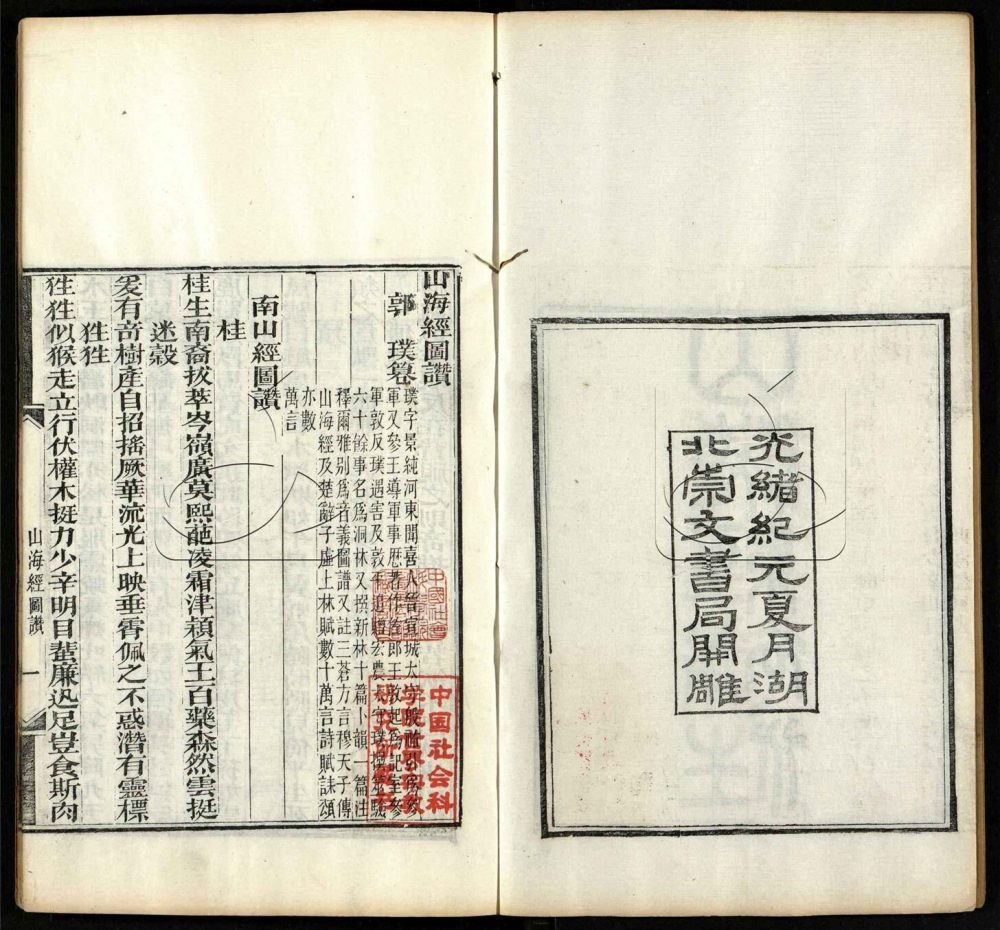 光緒紀元夏月湖
北崇文書局開雕
山海經圖讚
郭 璞
璞字景純河東聞喜人晉宣城太
軍又參王導軍事歷著作佐郎王敦起爲記室參
軍敦反璞遇害及敦平追贈宏農太守璞撰筮驗
六十餘事名爲洞林又撰新林十篇卜韻一篇注
釋爾雅别爲音義圖譜又註三蒼方言穆天子傳
山海經及楚辭子虛上林賦數十萬言詩賦誄頌
亦數
萬言
南山經圖讚
桂
桂生南裔拔萃岑嶺廣莫熙葩凌霜津穎氣王百藥森然雲挺
迷榖
爰有奇樹產自招搖厥華流光上映垂霄佩之不惑潛有靈標
狌狌
狌狌似猴走立行伏櫰木挺力少辛明目蜚廉迅足豈食斯肉
山海經圖讚
一
中国社会科